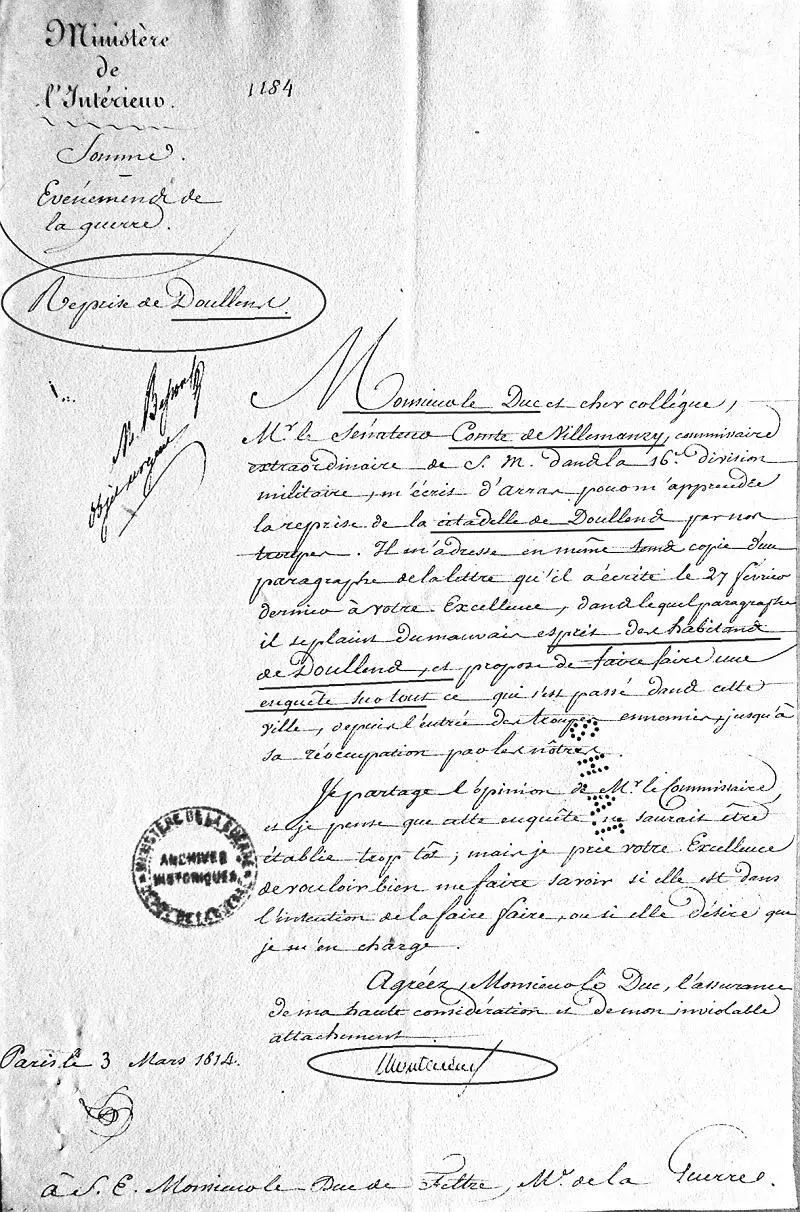 Ministère
de
l'Intérieur.
1184
Somme.
Evénemens de
la guerre.
Reprise de Doullens.
Monsieur le Duc et cher collègue,
Mr. le Sénateur Comte de Villemanzy, commissaire
extraordinaire de S. M. dans la 16e. division
militaire, m'écrit d'Arras pour m'apprendre
la reprise de la citadelle de Doullens par nos
troupes. Il m'adresse en même tems copie d'un
paragraphe de la lettre qu'il a écrite le 27 février
dernier à votre Excellence, dans lequel paragraphe
il se plaint du mauvais esprit des habitans
de Doullens, et propose de faire faire une
enquête sur tout ce qui s'est passé dans cette
ville, depuis l'entrée des troupes ennemies, jusqu'à
sa réoccupation par les nôtres.
Je partage l'opinion de Mr. le Commissaire,
et je pense que cette enquête ne saurait être
établie trop tôt; mais je prie votre Excellence
de vouloir bien me faire savoir si elle est dans
l'intention de la faire faire, ou si elle désire que
je m'en charge.
Agréez, Monsieur le Duc, l'assurance
de ma haute considération et de mon inviolable
attachement
Montalivet
Paris le 3 Mars 1814.
MINISTÈRE DE LA GUERRE
ARCHIVES
HISTORIQUES
à S. E. Monsieur le Duc de Feltre, Mre. de la Guerre.